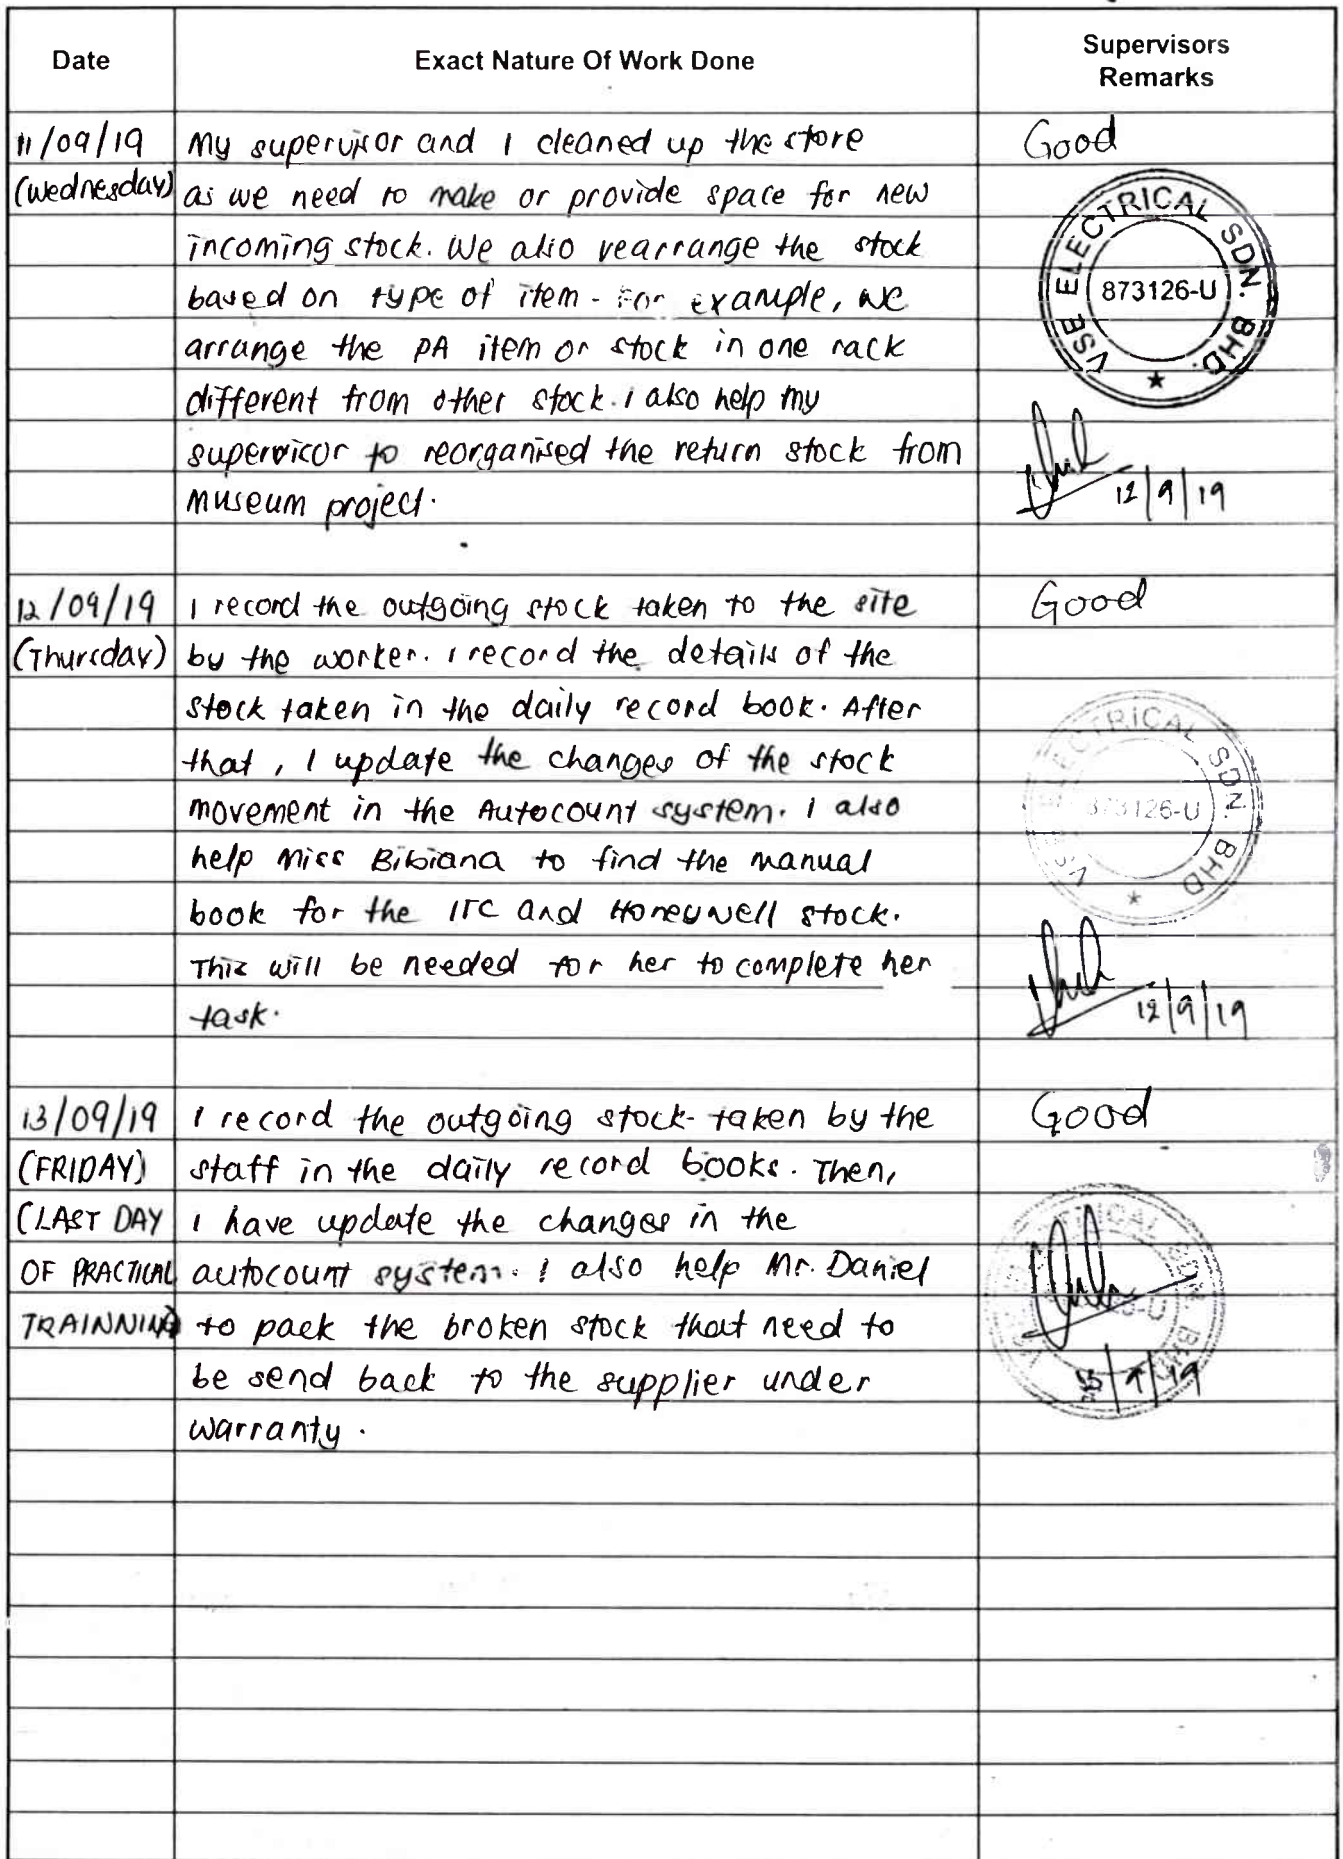 Date Exact Nature Of Work Done Supervisors Remarks
11/09/19 My supervisor and I cleaned up the store Good
(Wednesday) as we need to make or provide space for new
incoming stock. We also rearrange the stock
based on type of item - For example, we
arrange the PA item or stock in one rack
different from other stock. I also help my
supervisor to reorganised the return stock from
Museum project.
VSE ELECTRICAL SDN. BHD.
873126-U
12/9/19
12/09/19 I record the outgoing stock taken to the site Good
(Thursday) by the worker. I record the details of the
stock taken in the daily record book. After
that, I update the changes of the stock
movement in the Autocount system. I also
help Miss Bibiana to find the manual
book for the ITC and Honeywell stock.
This will be needed for her to complete her
task.
ELECTRICAL SDN. BHD
873126-U
12/9/19
13/09/19 I record the outgoing stock taken by the Good
(FRIDAY) staff in the daily record books. Then,
(LAST DAY I have update the changes in the
OF PRACTICAL autocount system. I also help Mr. Daniel
TRAINNING) to pack the broken stock that need to
be send back to the supplier under
warranty.